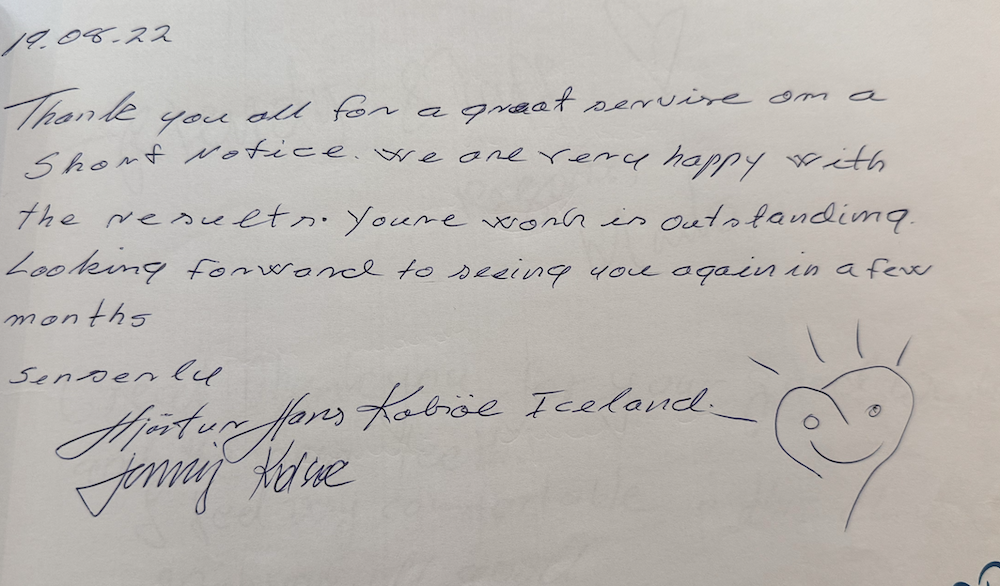 19.08.22
Thank you all for a great servise om a
Short Notice. We are very happy with
the results. Youre work is outstanding.
Looking forward to seeing you again in a few
months
Senserly
Hjörtur Hans Iceland.
Jenný